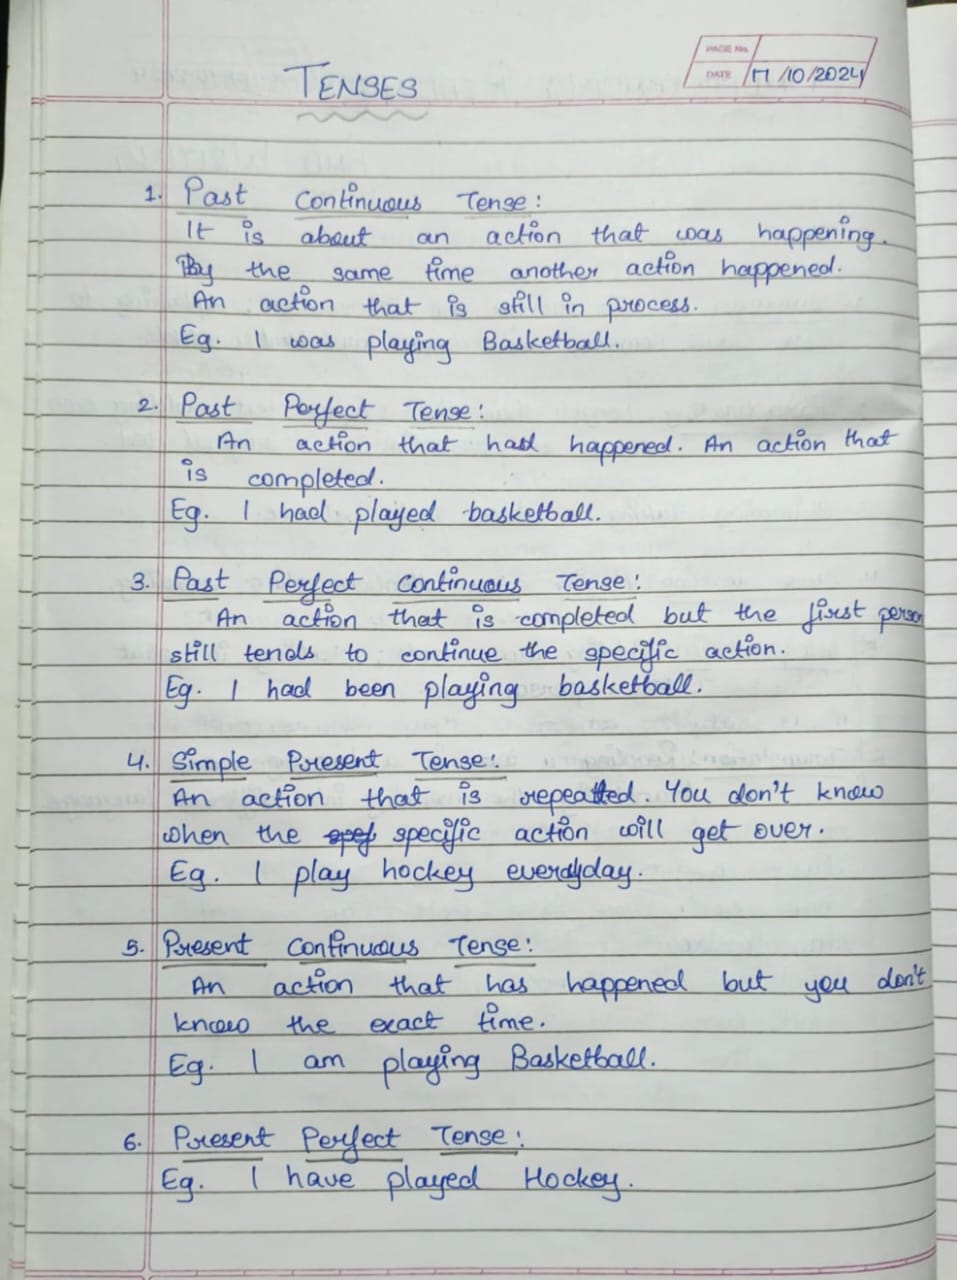 PAGE No.
DATE 17/10/2024
TENSES
1. Past Continuous Tense:
It is about an action that was happening.
By the same time another action happened.
An action that is still in process.
Eg. I was playing Basketball.
2. Past Perfect Tense:
An action that had happened. An action that
is completed.
Eg. I had played basketball.
3. Past Perfect Continuous Tense:
An action that is completed but the first person
still tends to continue the specific action.
Eg. I had been playing basketball.
4. Simple Present Tense:
An action that is repeated. You don't know
when the specific action will get over.
Eg. I play hockey everyday.
5. Present Continuous Tense:
An action that has happened but you don't
know the exact time.
Eg. I am playing Basketball.
6. Present Perfect Tense:
Eg. I have played Hockey.